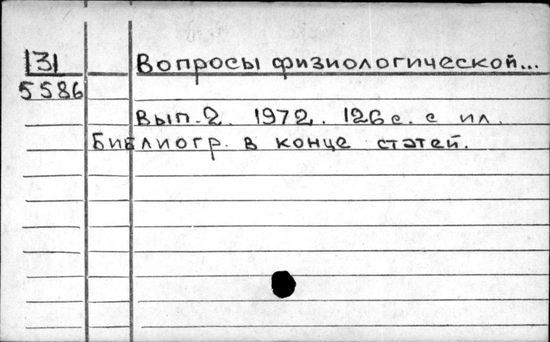 131 Вопросы физиологической...
5586
Вып.2. 1972. 126 с. с ил.
Библиогр. в конце статей.